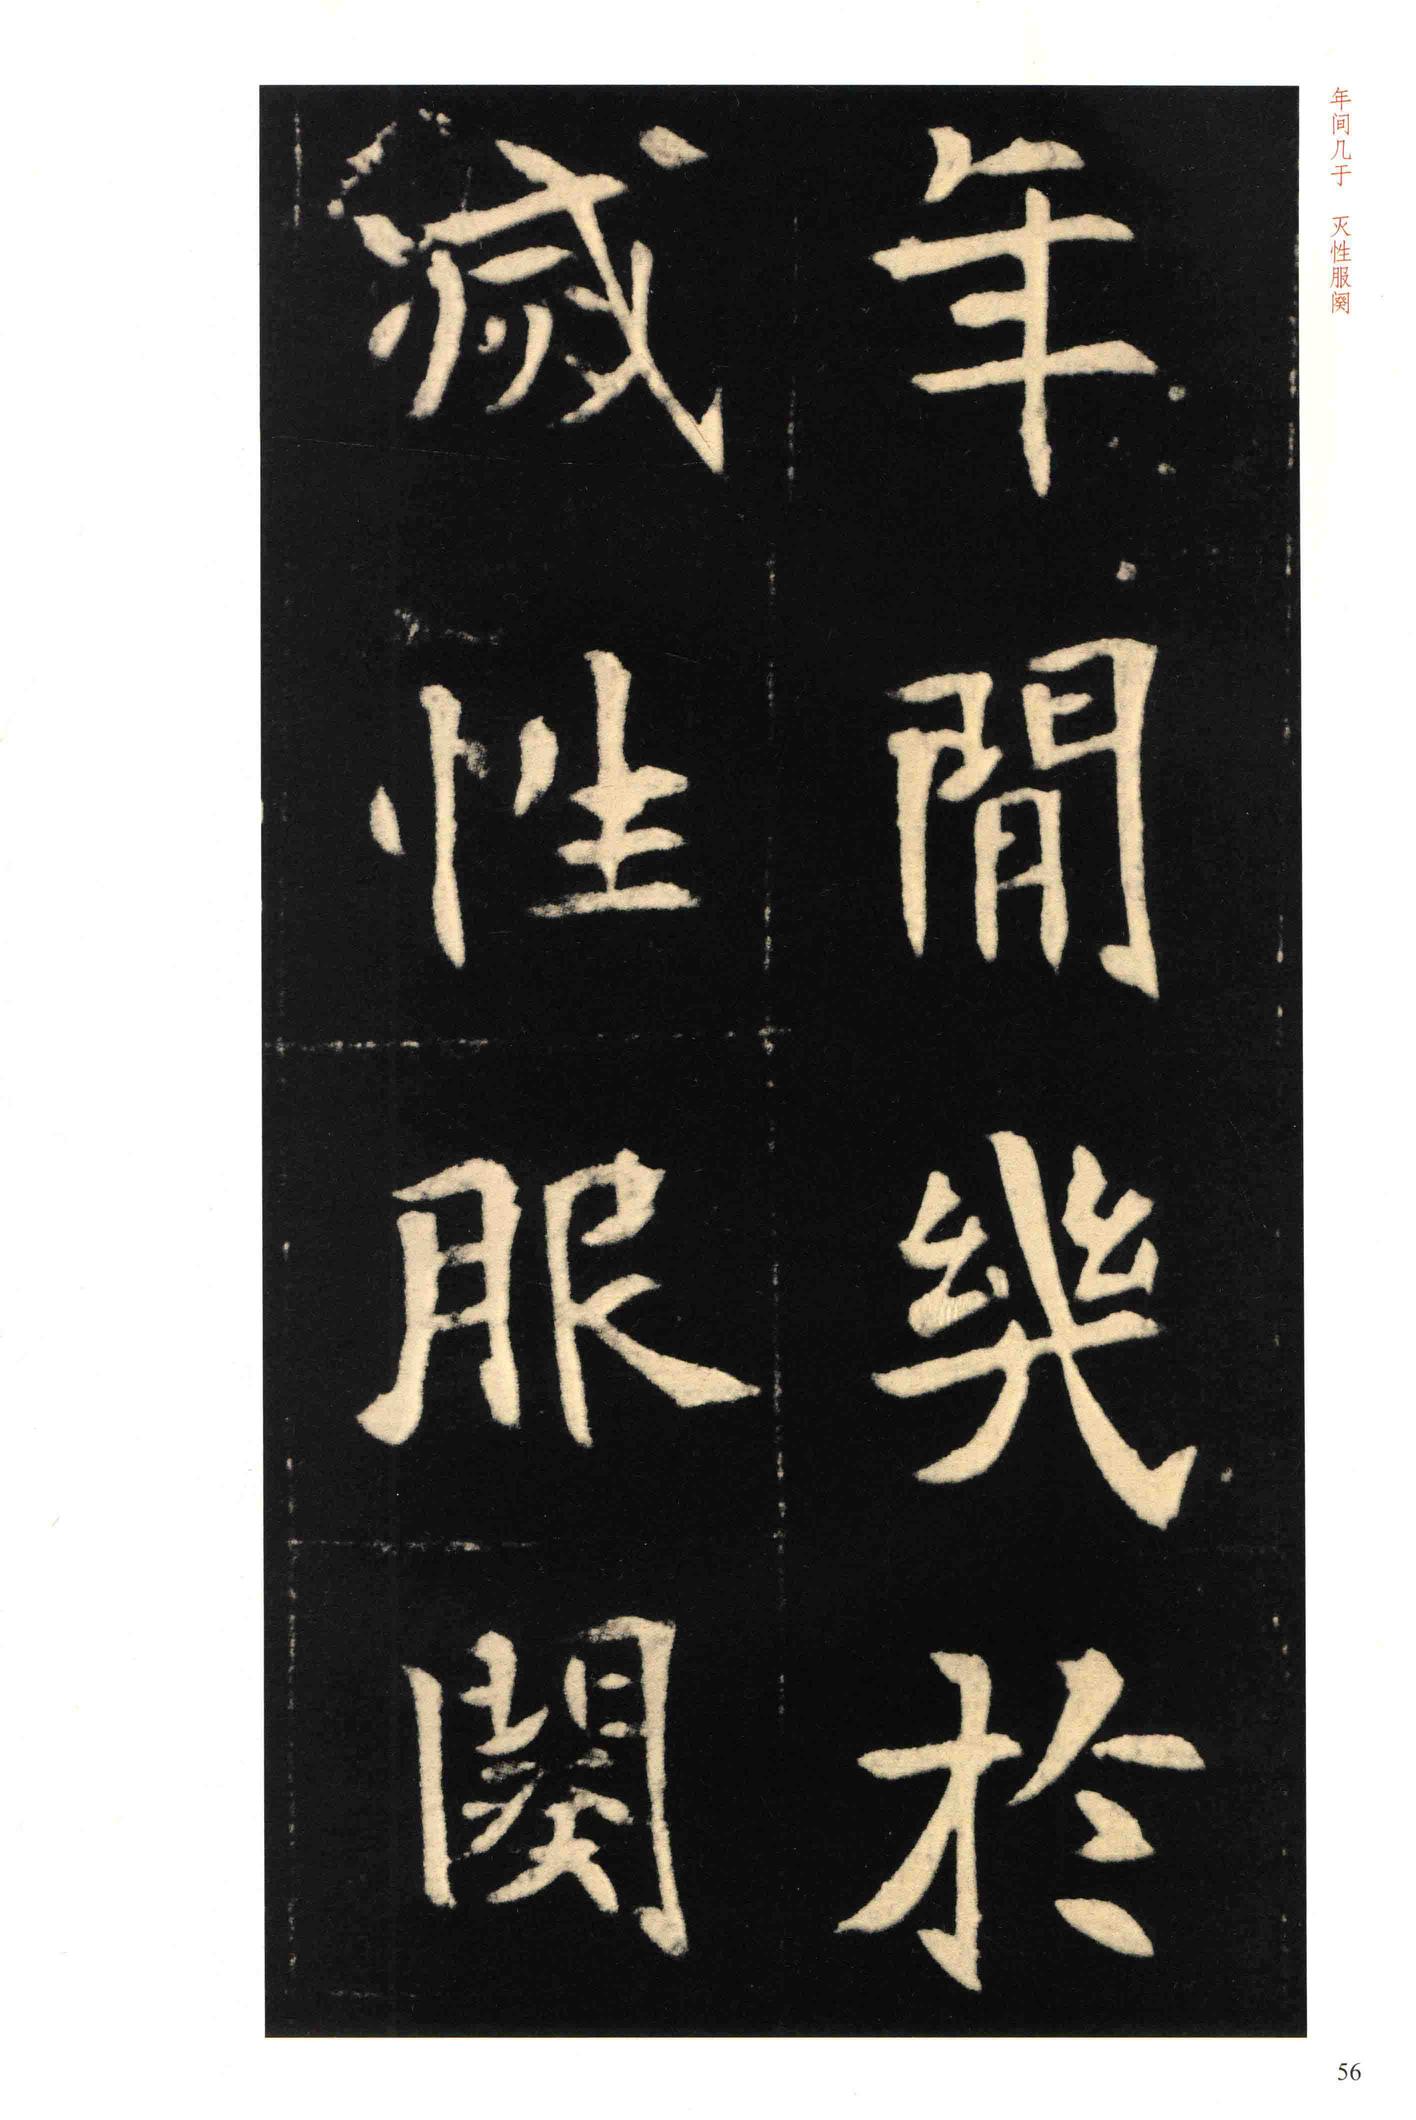 年间几于　灭性服阕
年閒幾於
滅性服闋
56